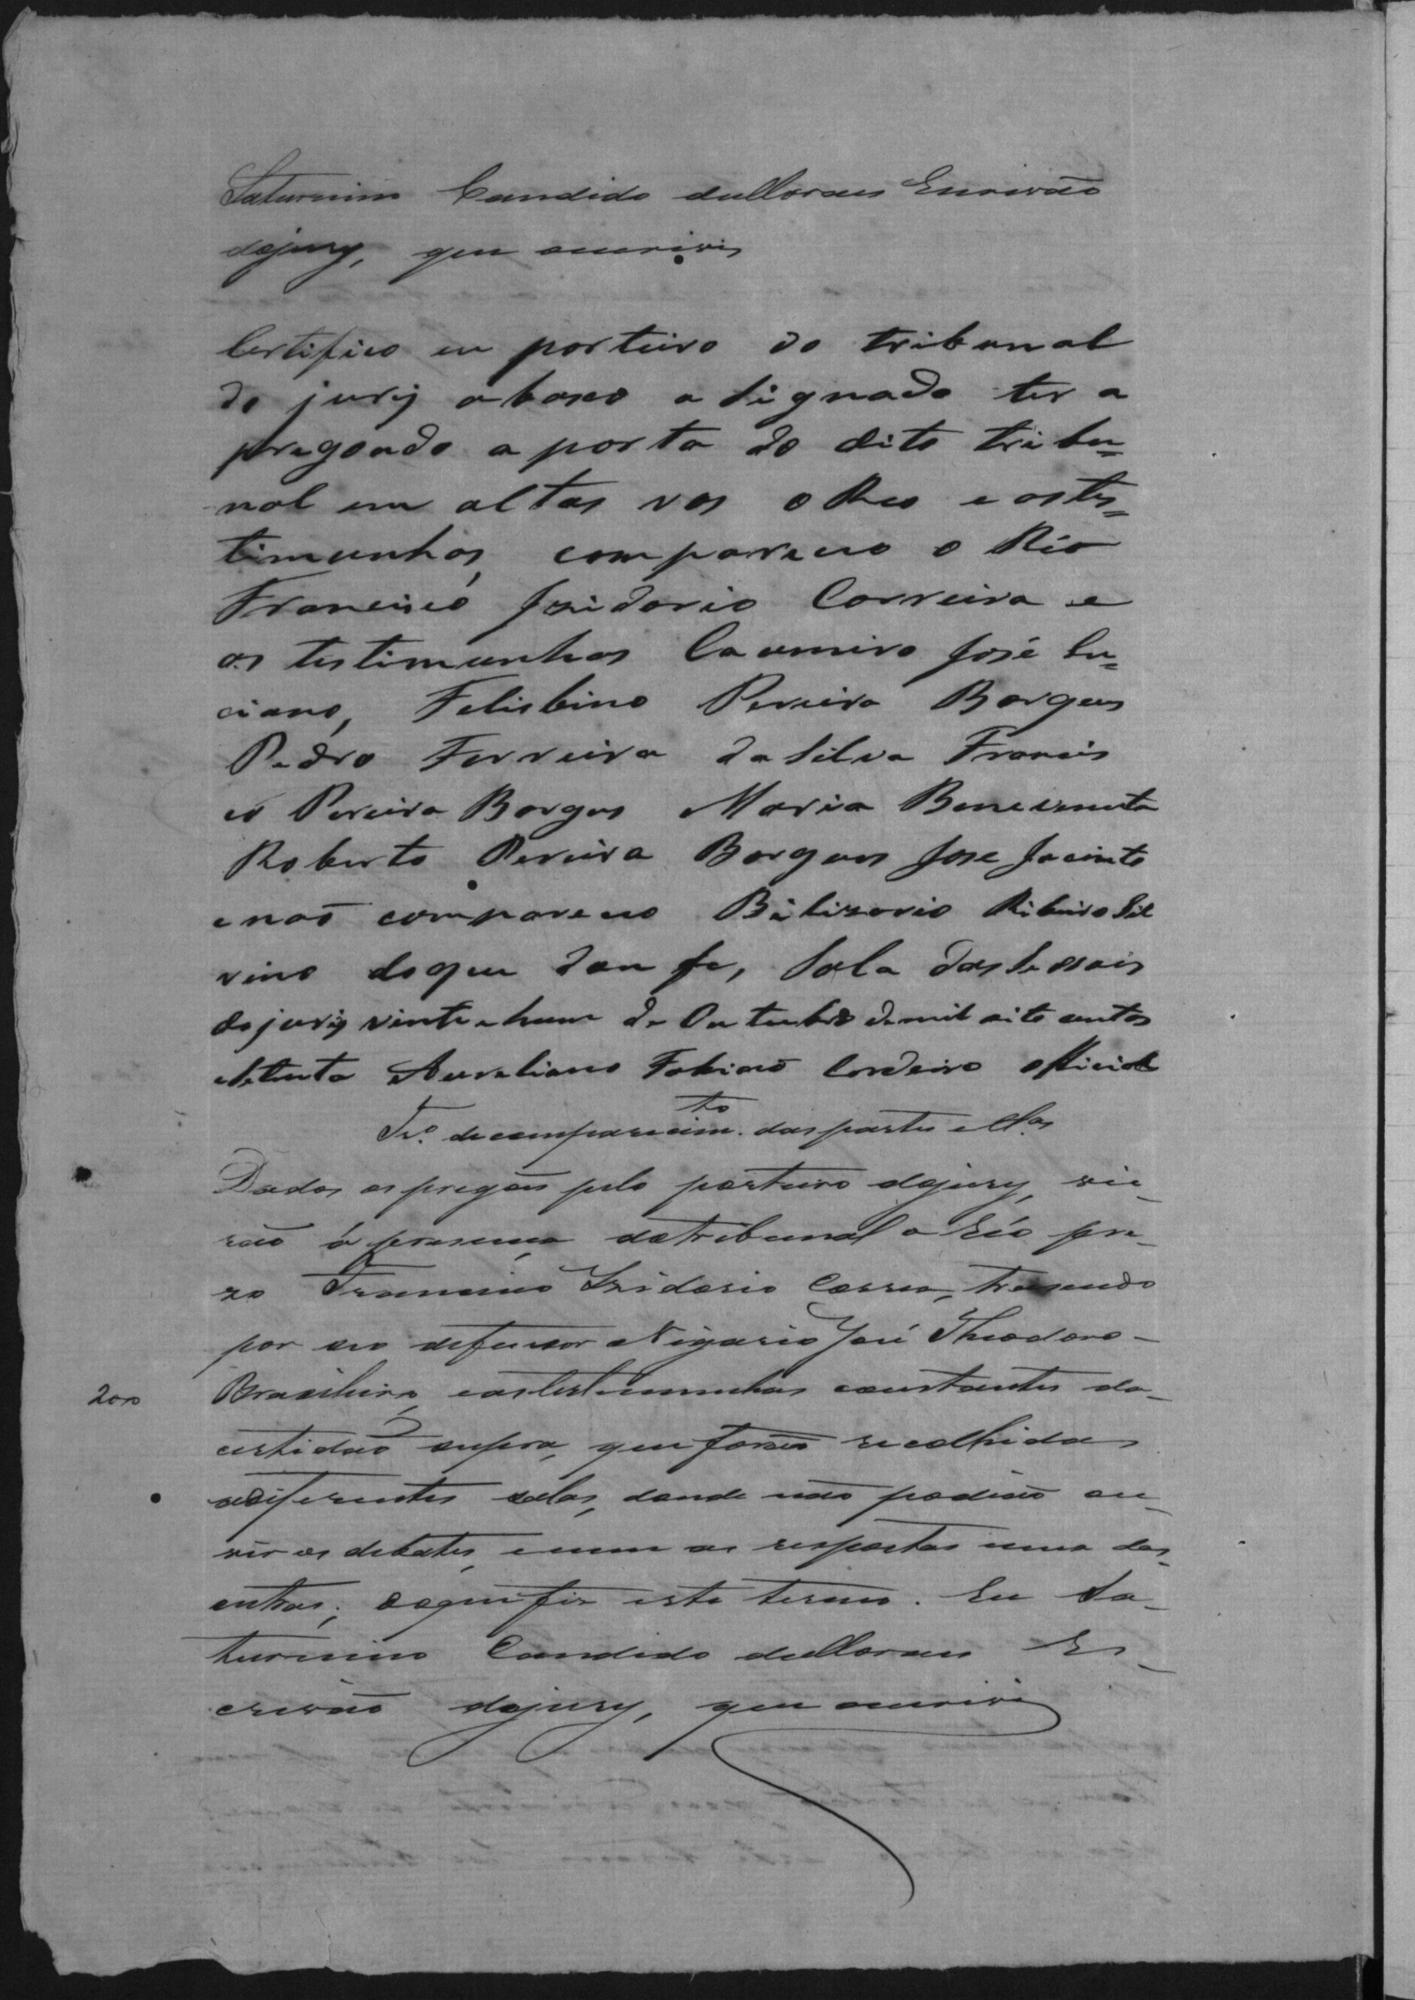 Saturnino Candido de Moraes Escrivão
do jury, que escrivi
Certifico eu porteiro do tribunal
do jury abaxo a Signado ter a
pregoado a porta do dito tribu=
nal em altas vos o Reo e astes=
timunhas, compareceo o Réo
Francisco Izidorio Correira e
as testimunhas Casemiro José Lu=
ciano, Felisbino Pereira Borges
Pedro Ferreira da Silva Francis
co Pereira Borges Maria Benevenuta
Roberto Pereira Borges Jose Jacinto
e naõ compareceo Bilizario Ribeiro Sil
vino do que dou fe, Sala das Sessois
do jury vinte e hum de Outubro de mil oito centos
e Setenta Aureliano Fabiano Cordeiro official
Tr.º de comparecim.to das partes e tt.as
Dados os pregões pelo porteiro do jury, vie-
rão á presença do tribunal o Réo pre-
zo Francisco Izidorio Correa, trasendo
por seo defensor o Vigario José Theodoro
Brasileiro, e as testemunhas constantes da
200
certidaõ supra, que foraõ recolhidas
a differentes salas, donde não podiaõ ou-
vir os debates, e nem as respostas uma das
outras; do que fiz este termo. Eu Sa-
turnino Candido de Moraes Es-
crivão do jury, que escrivi